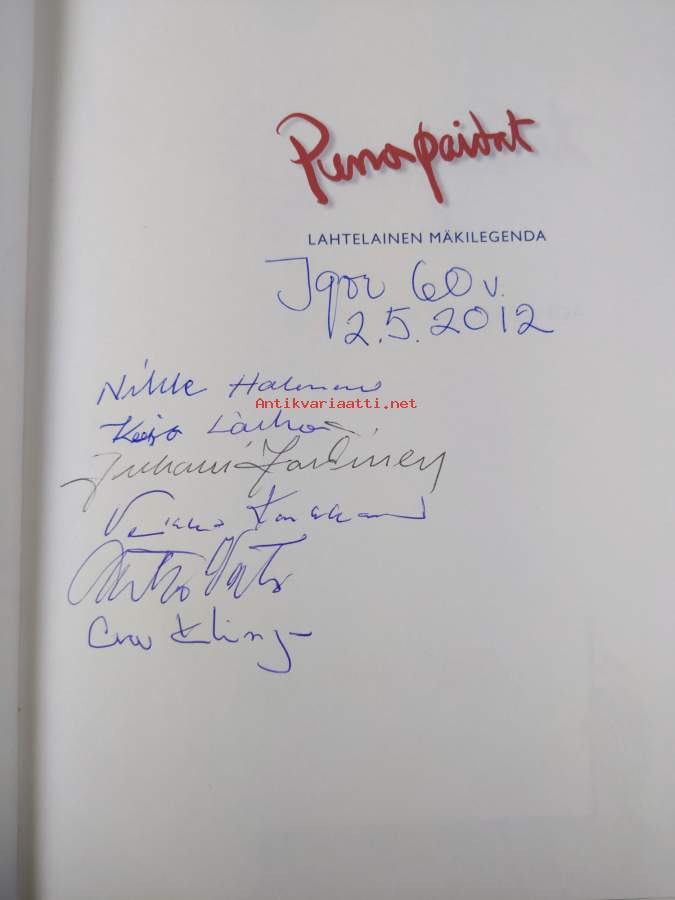 Punapaidat
LAHTELAINEN MÄKILEGENDA
Igor 60 v.
2.5.2012
Nikke Halonen
Antikvariaatti.net
Keijo Laiho
Juhani
Veikko Kankkonen
Erkko